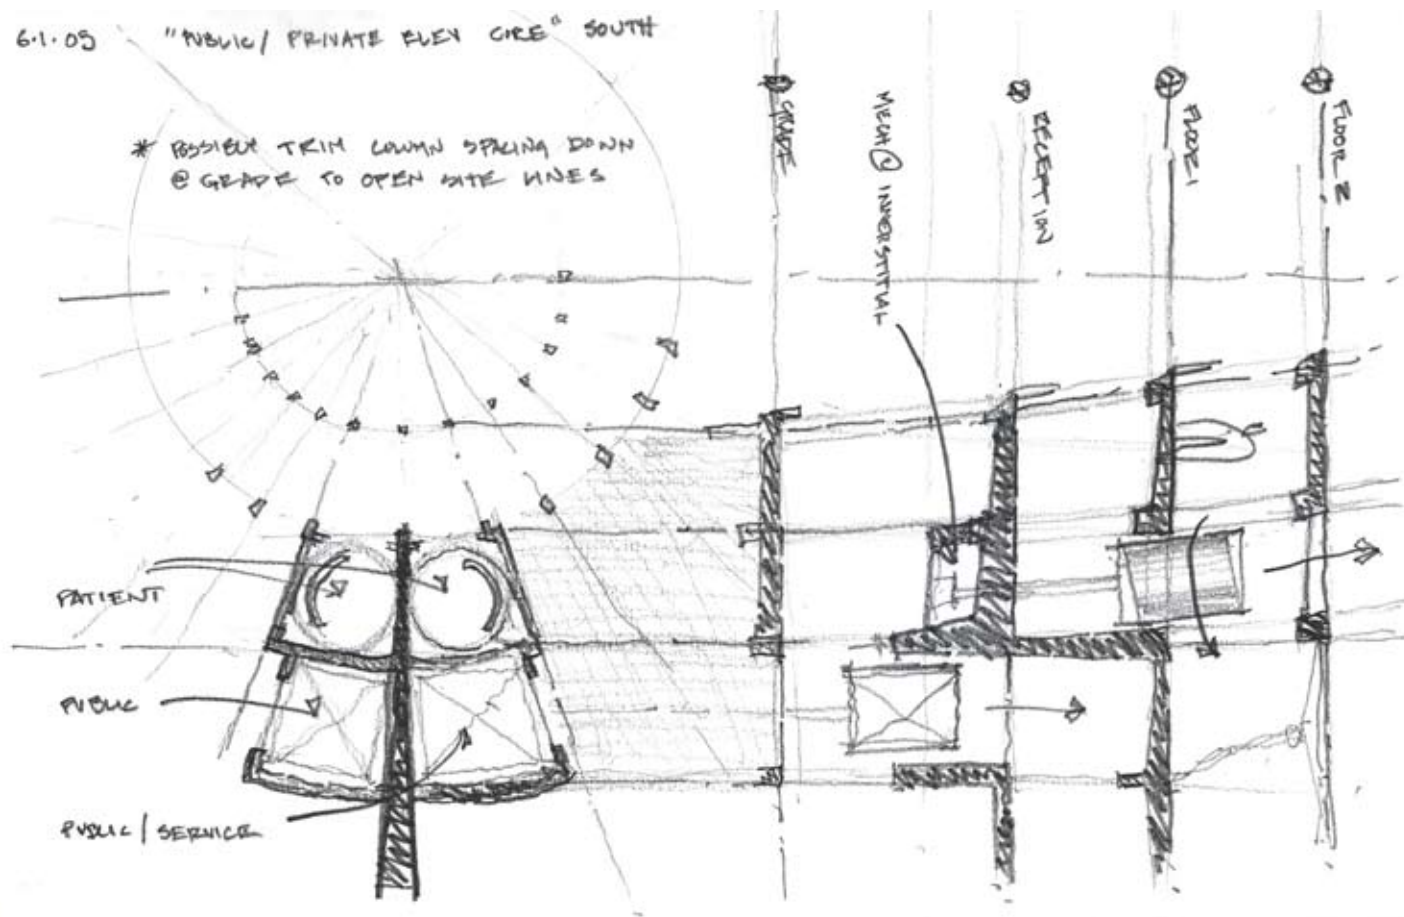 6.1.05 "PUBLIC/ PRIVATE ELEV CORE" SOUTH
* POSSIBLY TRIM COLUMN SPACING DOWN
@ GRADE TO OPEN SITE LINES
GRADE
MECH @ INNERSTITIAL
RECEPTION
FLOOR 1
FLOOR 2
PATIENT
PUBLIC
PUBLIC / SERVICE